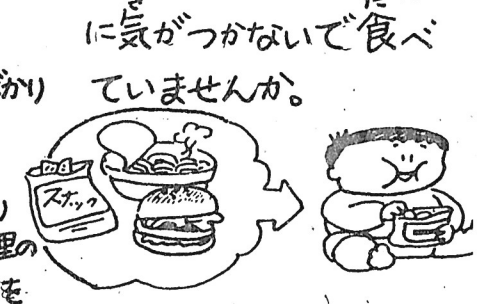 に気がつかないで食べ
ていませんか。
かり
スナック
理の
を